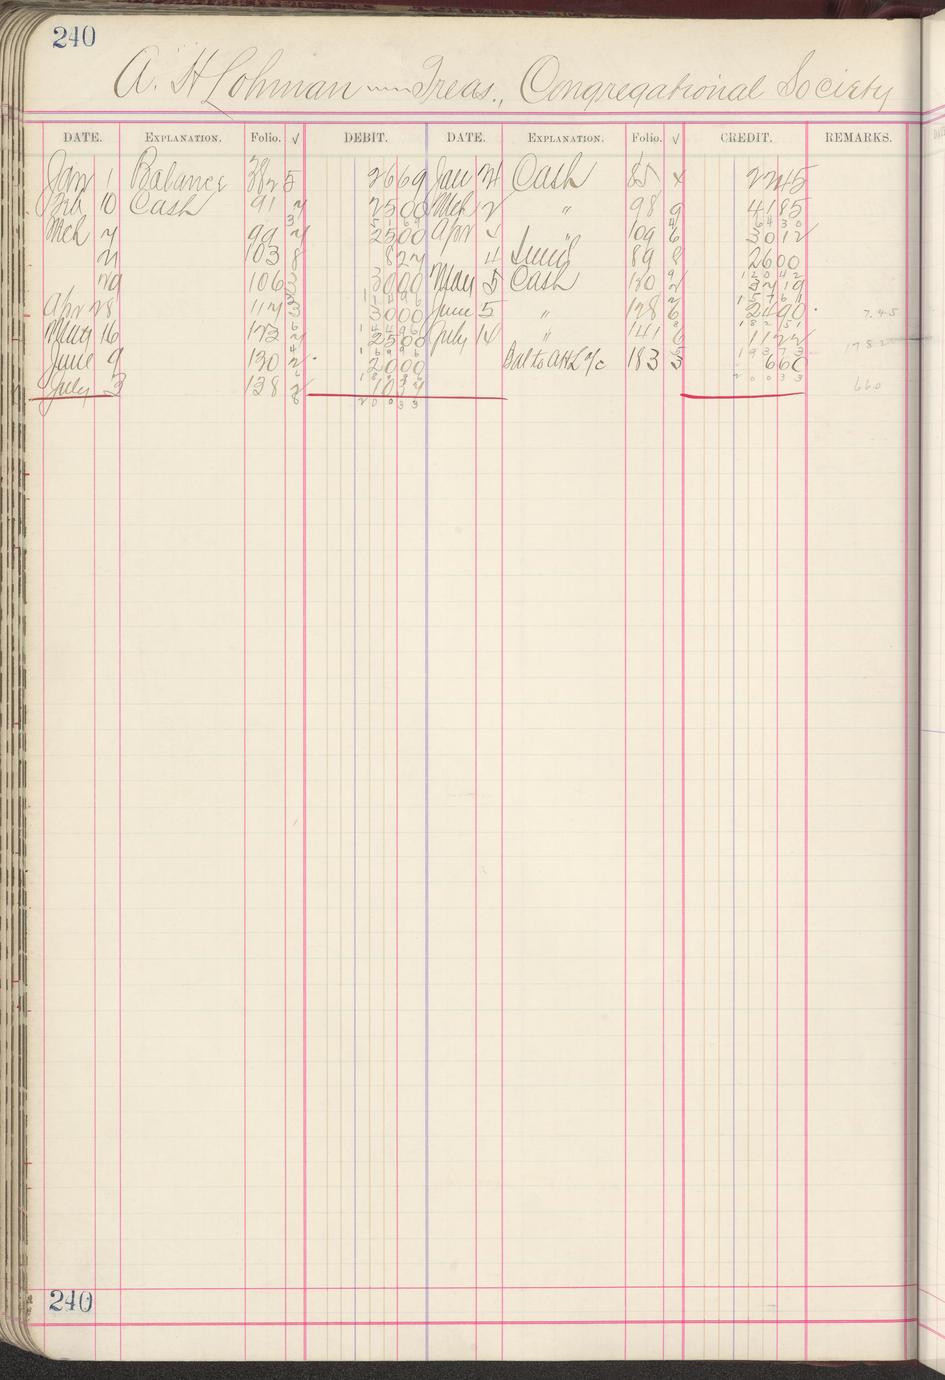 240
A. H Lohman Treas., Congregational Society
DATE. EXPLANATION. Folio. √ DEBIT. DATE. EXPLANATION. Folio. √ CREDIT. REMARKS.
Jan 1 Balance 382 5 2669 Jan 24 Cash 85 x 2245
10 Cash 91 2500 Mch 2 " 98 9 4185
Mch 7 99 2500 Apr 109 6 3012
21 103 8 827 4 89 8 2600
29 106 3 3000 May 5 Cash 120 2 3719
Apr 28 114 3 3000 June 5 " 128 6 2490 7.45
May 16 123 2500 July 14 " 141 6 1122 1782
June 9 130 2 2000 Bal to AHL a/c 183 3 660
July 3 138 2 1037 2 0 0 3 3 660
2 0 0 3 3
240